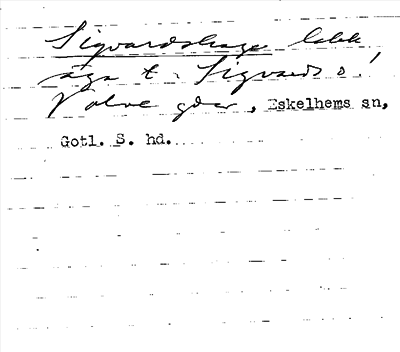 Sigvardshage
äga t. Sigvards o.
Valve gdr, Eskelhems sn,
Gotl. S. hd.